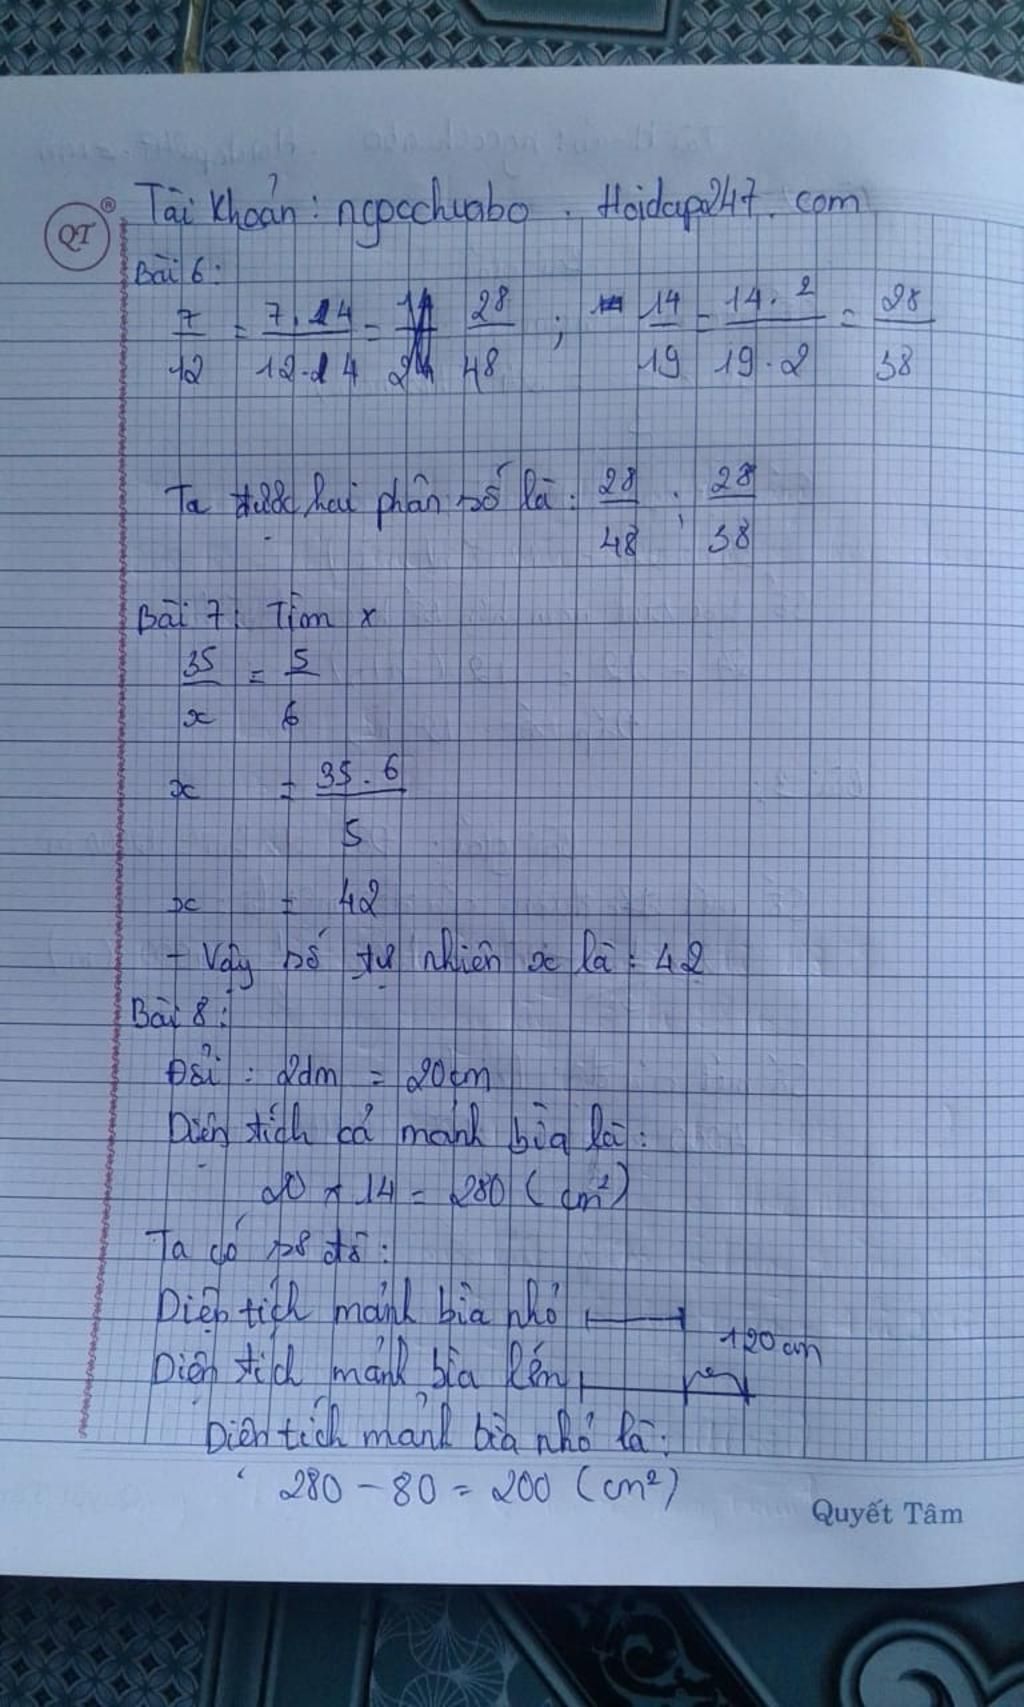 Tài khoản: ngocchuabo . Hoidap247.com
QT ®
Bài 6:
7/12 = 7.4/12.4 = 28/48 ; 14/19 = 14.2/19.2 = 28/38
Ta được hai phân số là: 28/48 ; 28/38
Bài 7: Tìm x
35/x = 5/6
x = 35.6/5
x = 42
- Vậy số tự nhiên x là: 42
Bài 8:
Đổi: 2dm = 20cm
Diện tích cả mảnh bìa là:
20 x 14 = 280 (cm²)
Ta có sơ đồ:
Diện tích mảnh bìa nhỏ
120cm
Diện tích mảnh bìa lớn
Diện tích mảnh bìa nhỏ là:
280 - 80 = 200 (cm²)
Quyết Tâm